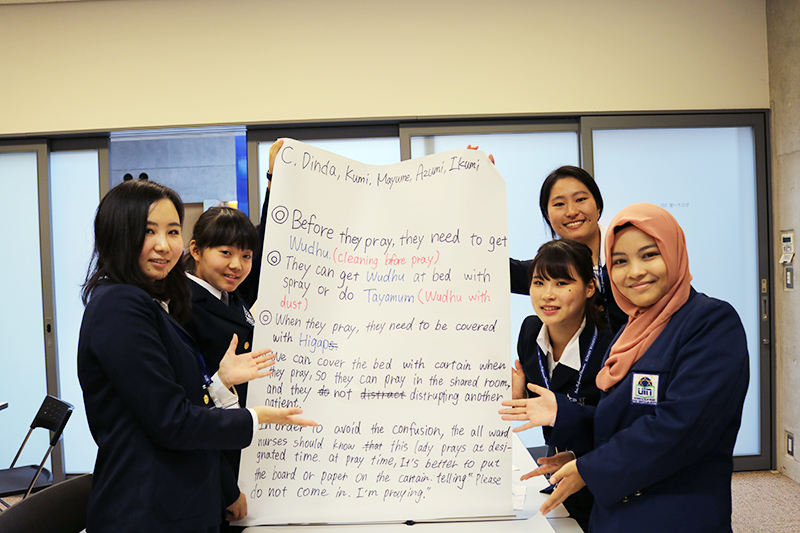 C, Dinda, Kumi, Mayume, Azumi, Ikumi,
◎ Before they pray, they need to get
Wudhu. (cleaning before pray)
◎ They can get Wudhu at bed with
spray or do Tayamum (Wudhu with
dust)
◎ When they pray, they need to be covered
with Higaps
We can cover the bed with cartain when
they pray, so they can pray in the shared room,
and they do not distract distrupting another
patient!
In order to avoid the confusion, the all ward
nurses should know that this lady prays at desi-
gnated time. at pray time, It's better to put
the board or paper on the cartain. telling "Please
do not come in. I'm praying."
uin